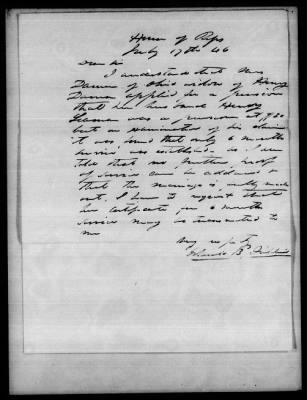 House of Reps
July 17th 46
Dear Sir
I understand that Mrs
of Ohio widow of Henry
applied for a pension
that her husband Henry
was a pensioner at
but on examination of his claim
it was found that only 6 months
service was established as I am
told that no further proof
of service can be adduced &
that the marriage is made
out. I have to request that
her certificate for 6 months
service may be transmitted to
me
Very resp. ty
B.